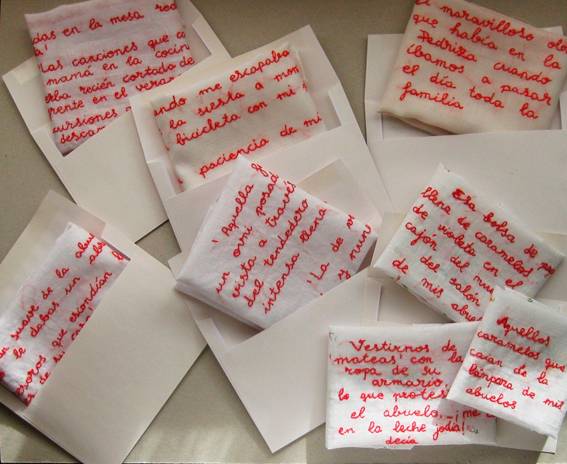 das en la mesa
las canciones que
mamá en la cocin
rba recién cortado de
frente en el veran
cursiones
descan
ndo me escapaba
la siesta a mon
bicicleta con mi
paciencia de mi
maravilloso olo
que había en la
Pedriza cuando
íbamos a pasar
el día toda la
familia
Aquella
un ovni posad
vista a travé
del
intensa
La de
Esa bolsa de
llena de caramelos
de violeta en el
cajón del mue
del salón
de mis abue
de la abue
le daban un
que escondían
Vestirnos de
'mateas' con la
ropa de su
armario,
lo que protes
el abuelo, ¡me c
en la leche jodía!
decía
Aquellos
caramelos que
caían de la
lámpara de mis
abuelos